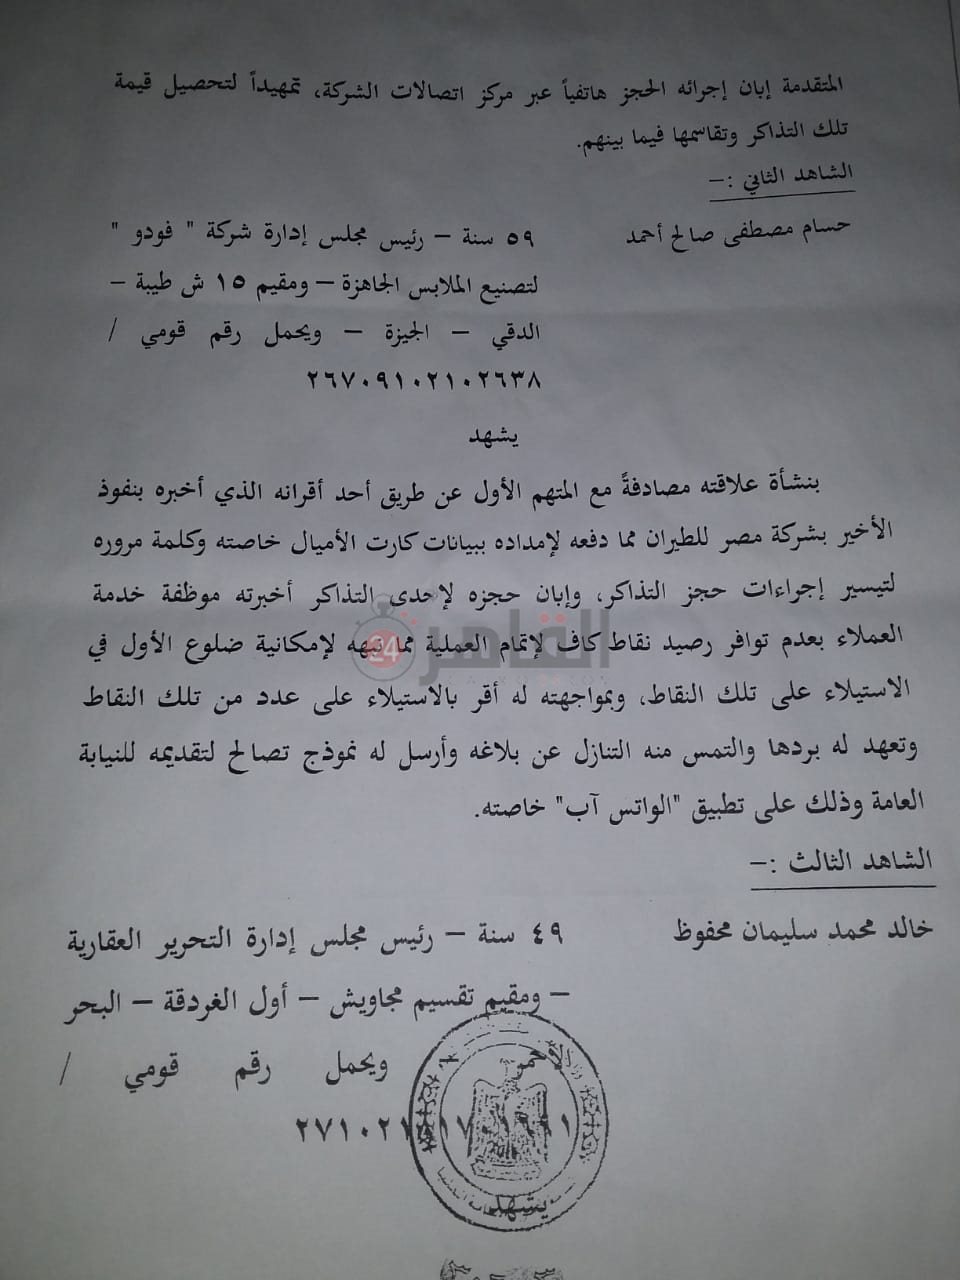 المتقدمة إبان إجرائه الحجز هاتفياً عبر مركز اتصالات الشركة، تمهيداً لتحصيل قيمة
تلك التذاكر وتقاسمها فيما بينهم.
الشاهد الثاني :–
حسام مصطفى صالح أحمد
٥٩ سنة – رئيس مجلس إدارة شركة " فودو "
لتصنيع الملابس الجاهزة – ومقيم ١٥ ش طيبة –
الدقي – الجيزة – ويحمل رقم قومي /
٢٦٧٠٩١٠٢١٠٢٦٣٨
يشهد
بنشأة علاقته مصادفةً مع المتهم الأول عن طريق أحد أقرانه الذي أخبره بنفوذ
الأخير بشركة مصر للطيران مما دفعه لإمداده ببيانات كارت الأميال خاصته وكلمة مروره
لتيسير إجراءات حجز التذاكر، وإبان حجزه لإحدى التذاكر أخبرته موظفة خدمة
العملاء بعدم توافر رصيد نقاط كاف لإتمام العملية مما نبهه لإمكانية ضلوع الأول في
الاستيلاء على تلك النقاط، وبمواجهته له أقر بالاستيلاء على عدد من تلك النقاط
وتعهد له بردها والتمس منه التنازل عن بلاغه وأرسل له نموذج تصالح لتقديمه للنيابة
العامة وذلك على تطبيق "الواتس آب" خاصته.
الشاهد الثالث :–
خالد محمد سليمان محفوظ
٤٩ سنة – رئيس مجلس إدارة التحرير العقارية
– ومقيم تقسيم مجاويش – أول الغردقة – البحر
الأحمر ويحمل رقم قومي /
يشهد
القاهرة 24